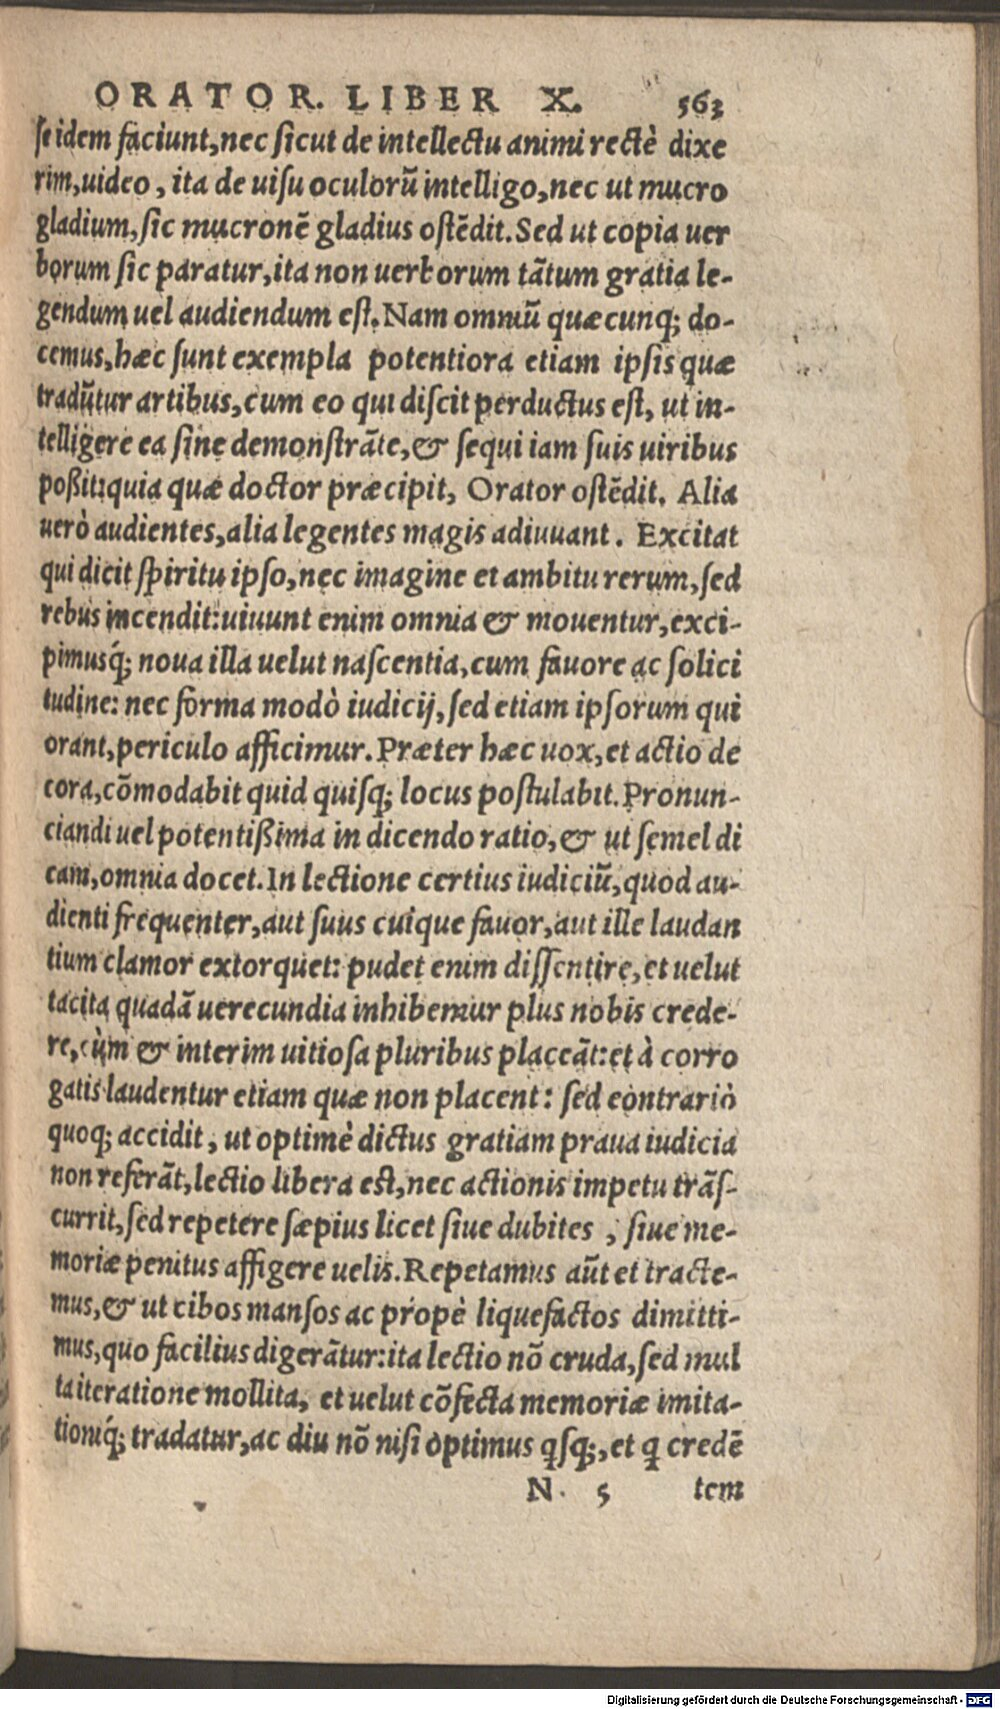 ORATOR. LIBER X. 563
se idem faciunt, nec sicut de intellectu animi rectè dixe
rim, uideo, ita de uisu oculorũ intelligo, nec ut mucro
gladium, sic mucronẽ gladius ostẽdit. Sed ut copia uer
borum sic paratur, ita non uerborum tãtum gratia le-
gendum uel audiendum est. Nam omniũ quæcunq; do-
cemus, hæc sunt exempla potentiora etiam ipsis quæ
tradũtur artibus, cum eo qui discit perductus est, ut in-
telligere ea sine demonstrãte, & sequi iam suis uiribus
poßit: quia quæ doctor præcipit, Orator ostẽdit. Alia
uerò audientes, alia legentes magis adiuuant. Excitat
qui dicit spiritu ipso, nec imagine et ambitu rerum, sed
rebus incendit: uiuunt enim omnia & mouentur, exci-
pimusq́; noua illa uelut nascentia, cum fauore ac solici
tudine: nec forma modò iudicij, sed etiam ipsorum qui
orant, periculo afficimur. Præter hæc uox, et actio de
cora, cõmodabit quid quisq; locus postulabit. Pronun-
ciandi uel potentißima in dicendo ratio, & ut semel di
cam, omnia docet. In lectione certius iudiciũ, quod au-
dienti frequenter, aut suus cuique fauor, aut ille laudan
tium clamor extorquet: pudet enim dissentire, et uelut
tacita quadã uerecundia inhibemur plus nobis crede-
re, cùm & interim uitiosa pluribus placeãt: et à corro
gatis laudentur etiam quæ non placent: sed contrariò
quoq; accidit, ut optimè dictus gratiam praua iudicia
non referãt, lectio libera est, nec actionis impetu trãs-
currit, sed repetere sæpius licet siue dubites, siue me-
moriæ penitus affigere uelis. Repetamus aũt et tracte-
mus, & ut cibos mansos ac propè liquefactos dimitti-
mus, quo facilius digerãtur: ita lectio nõ cruda, sed mul
ta iteratione mollita, et uelut cõfecta memoriæ imita-
tioniq́; tradatur, ac diu nõ nisi optimus qsq;, et q credẽ
N. 5 tem
Digitalisierung gefördert durch die Deutsche Forschungsgemeinschaft - DFG